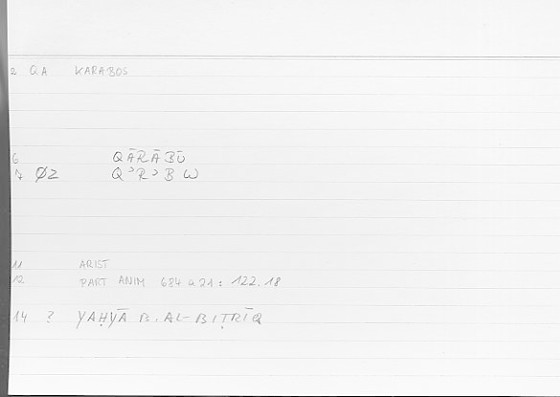 2 QA KARABOS
6 QĀRĀBŪ
7 ØZ QʾRʾBW
11 ARIST
12 PART ANIM 684 a 21 : 122.18
14 ? YAḤYĀ B. AL-BIṬRĪQ